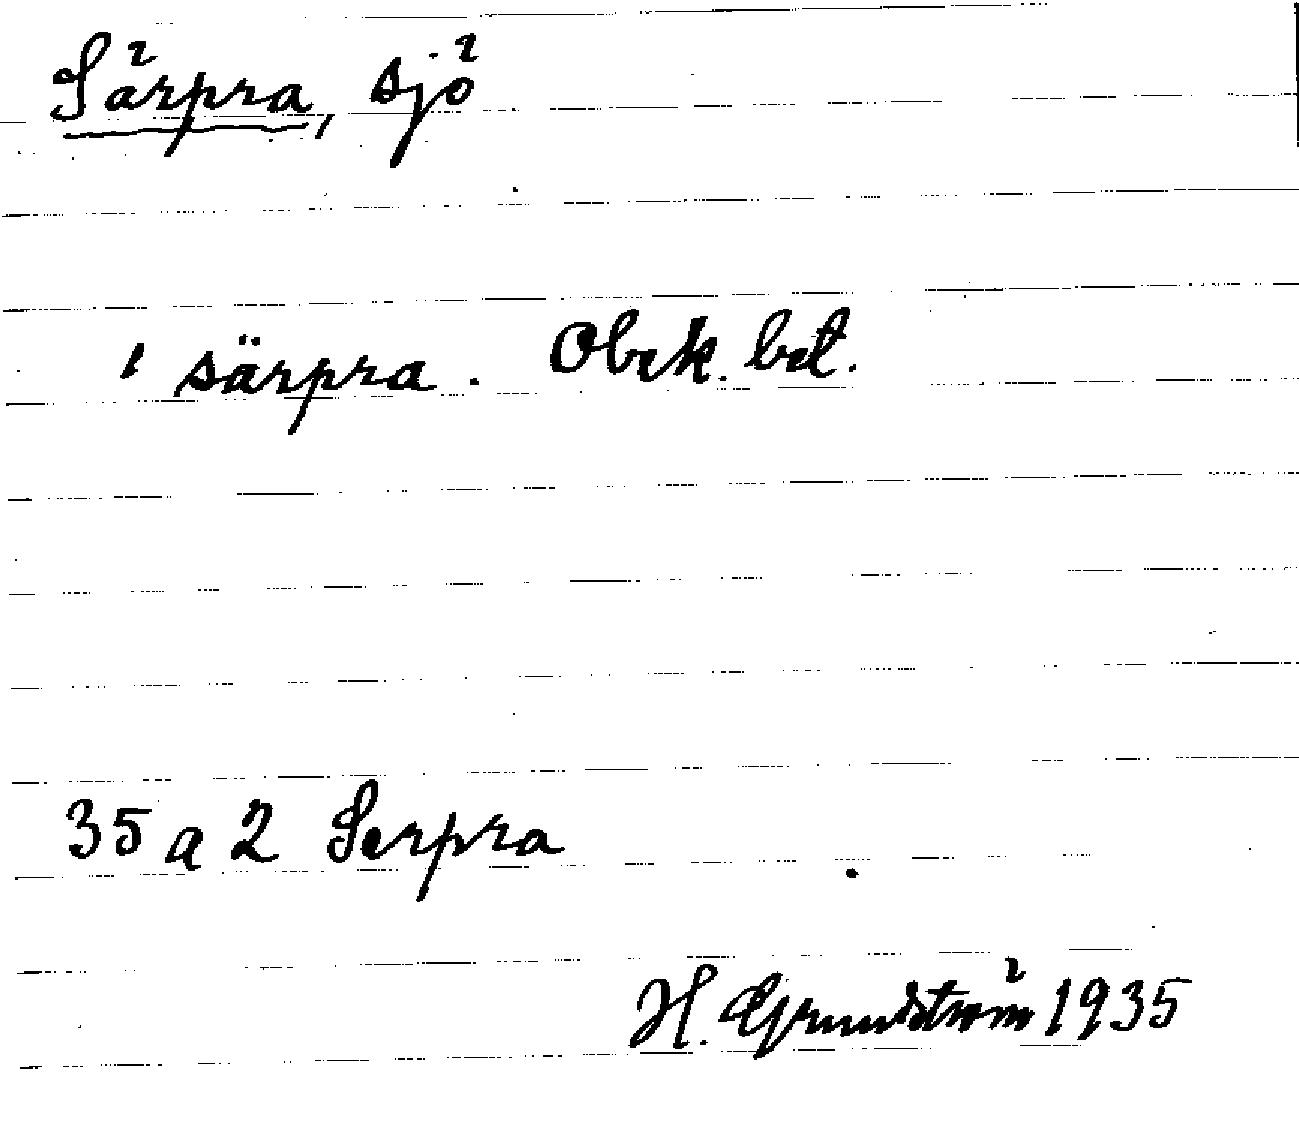 Särpra, sjö
ˈsärpra. Obek. bet.
35 a 2 Serpra
H. Grundström 1935